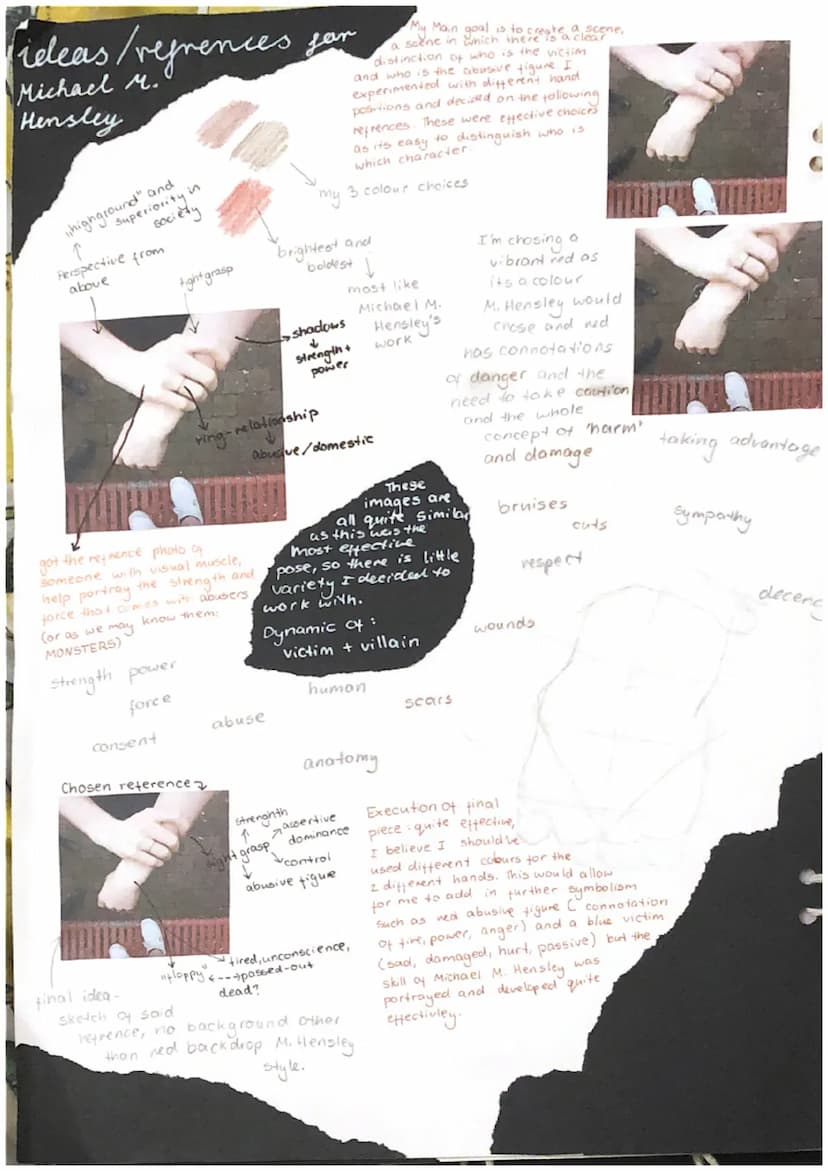 ideas/refrences for
Michael M.
Hensley
My Main goal is to create a scene,
a scene in which there is a clear
distinction of who is the victim
and who is the abusive figure I
experimented with different hand
positions and decided on the following
refrences. These were effective choices
as its easy to distinguish who is
which character.
my 3 colour choices
"highground" and
superiority in
society
Perspective from
above
tight grasp
brightest and
boldest
most like
Michael M.
Hensley's
work
shadows
strength +
power
ring-relationship
abusive/domestic
I'm chosing a
vibrant red as
its a colour
M. Hensley would
chose and red
has connotations
of danger and the
need to take caution
and the whole
concept of 'harm'
and damage
taking advantage
got the refrence photo of
someone with visual muscle,
help portray the strength and
force that comes with abusers
(or as we may know them:
MONSTERS)
These
images are
all quite similar
as this was the
most effective
pose, so there is little
variety I decided to
work with.
Dynamic of:
victim + villain
bruises
cuts
sympathy
respect
decenc
wounds
strength power
force
consent
abuse
human
scars
anatomy
Chosen reference
strenghth
assertive
dominance
tight grasp
control
abusive figure
"floppy"
tired, unconscience,
passed-out
dead?
final idea-
sketch of said
refrence, no background other
than red backdrop M. Hensley
style.
Execution of final
piece - quite effective,
I believe I should've
used different colours for the
2 different hands. This would allow
for me to add in further symbolism
such as red abusive figure (connotation
of fire, power, anger) and a blue victim
(sad, damaged, hurt, passive) but the
skill of Michael M. Hensley was
portrayed and developed quite
effectivley.